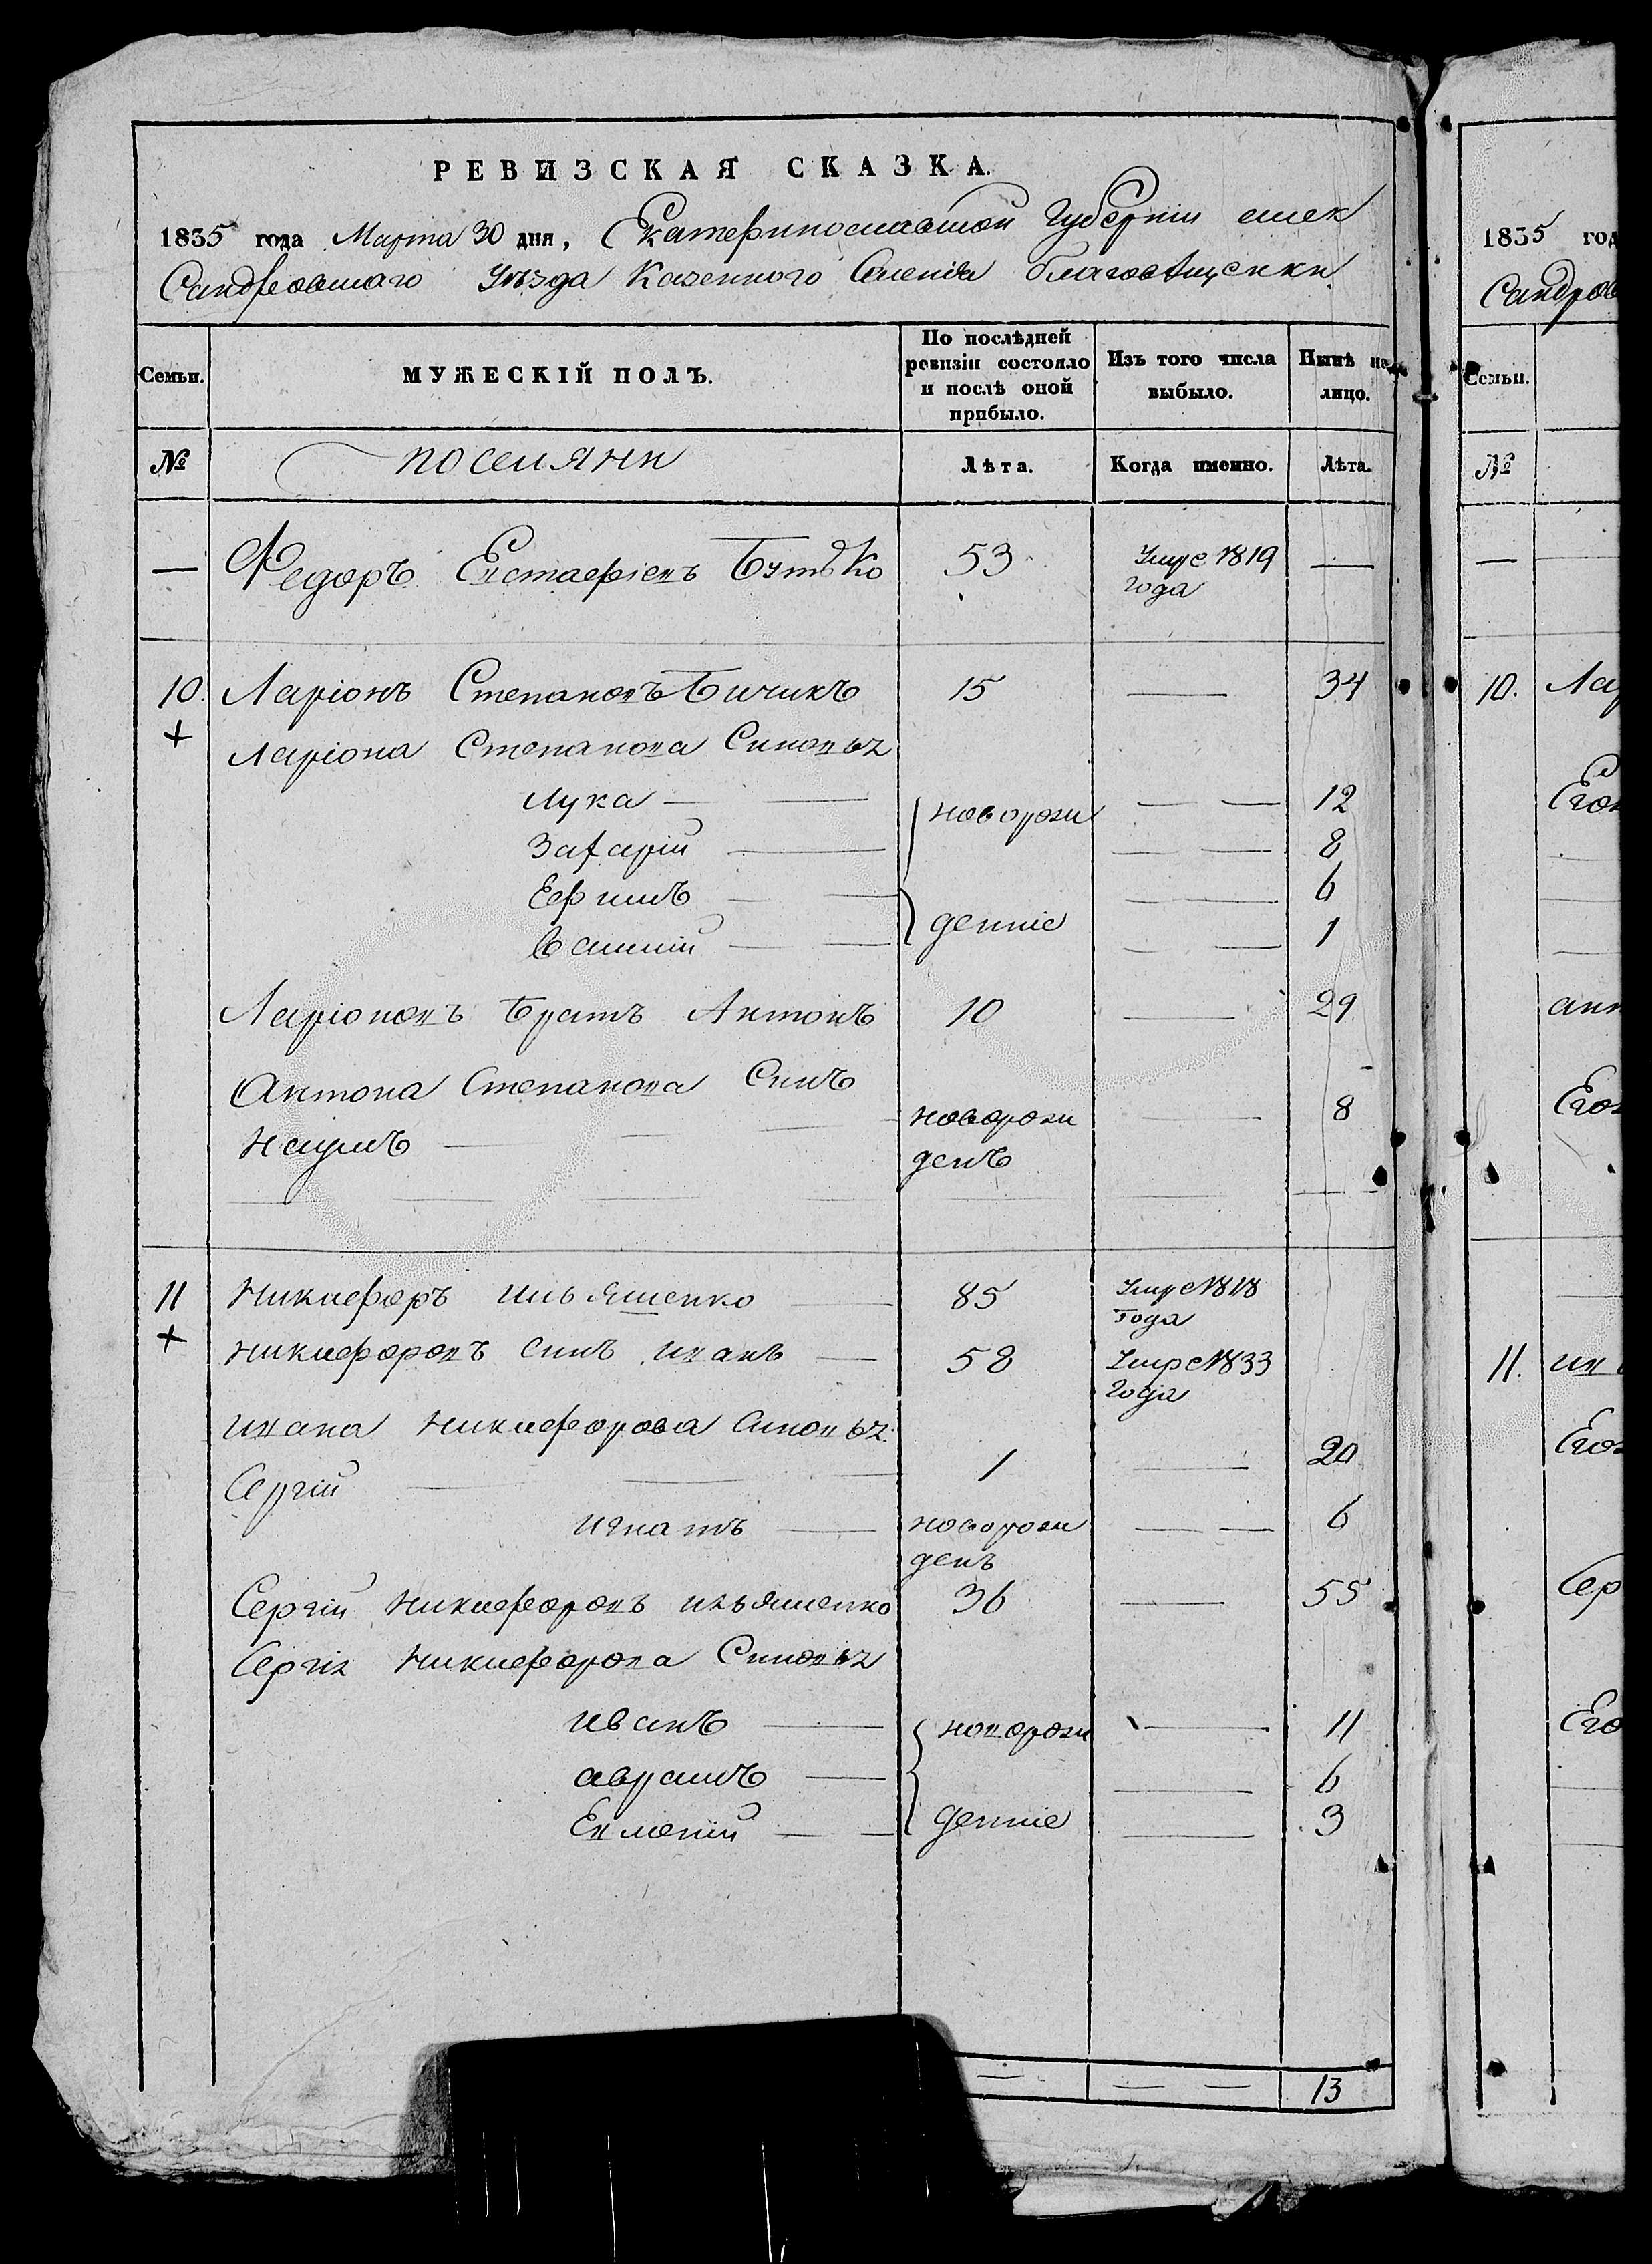 РЕВИЗСКАЯ СКАЗКА.
1835 года Марта 30 дня, Екатеринославской Губерніи алек
сандровскаго Уѣзда Казенного Селенія благовѣщенки
Семьи.
МУЖЕСКІЙ ПОЛЪ.
По послѣдней ревизіи состояло и послѣ оной прибыло.
Изъ того числа выбыло.
Нынѣ на лицо.
№ поселяни Лѣта. Когда именно. Лѣта.
— Федоръ Евстафіевъ Бутько 53 Умре 1819 года —
10. Ларіонъ Степановъ Бичикъ 15 — 34
Ларіона Степанова Синовья
Лука — новорож — 12
Захарій — — 8
Ефимъ — — 6
Василій — денніе — 1
Ларіоновъ братъ Антонъ 10 — 29
Антона Степанова Синъ
Наумъ — новорож денъ — 8
11 Никифоръ ильяшенко — 85 Умре 1818 года
никифоровъ синъ иванъ — 58 Умре 1833 года
ивана никифорова синовья
Сергій — 1 — 20
игнатъ — новорож денъ — 6
Сергій никифоровъ ильяшенко 36 — 55
Сергія никифорова Синовья
иванъ — новорож — 11
аврамъ — — 6
Евменій — денніе — 3
— — 13
1835 год
сандров
Семьи.
№
—
10. Лар
Его
анн
Его
11. ив
Его
Сер
Его